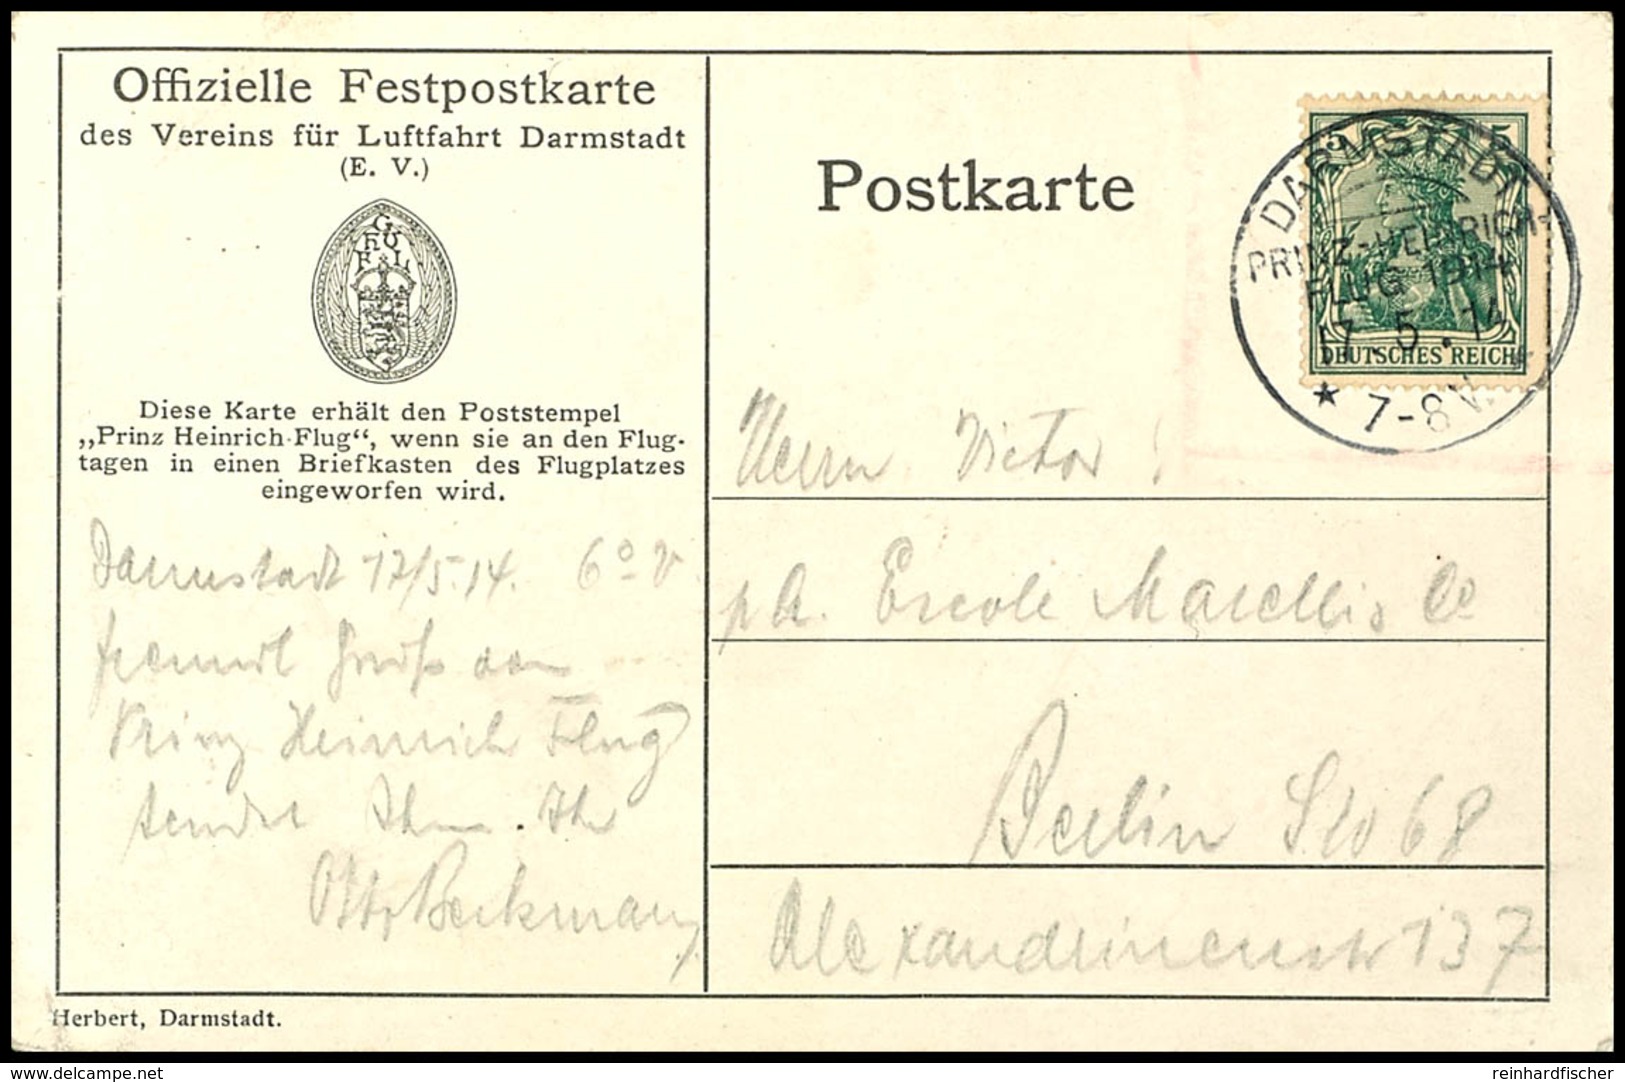 Offizielle Festpostkarte
des Vereins für Luftfahrt Darmstadt
(E. V.)
Diese Karte erhält den Poststempel
„Prinz Heinrich-Flug“, wenn sie an den Flug-
tagen in einen Briefkasten des Flugplatzes
eingeworfen wird.
Darmstadt 17/5.14. 6º V
freundl Gruß vom
Prinz Heinrich Flug
sendet Ihnen Ihr
Otto Beckmann
Herbert, Darmstadt.
Postkarte
5 5
DEUTSCHES REICH
DARMSTADT
PRINZ-HEINRICH-
FLUG 1914
17.5.14
* 7-8 V.
Herrn Victor
Ercole Marellis Co
Berlin SW 68
Alexandrinenstr 137
delcampe.net
reinhardfischer